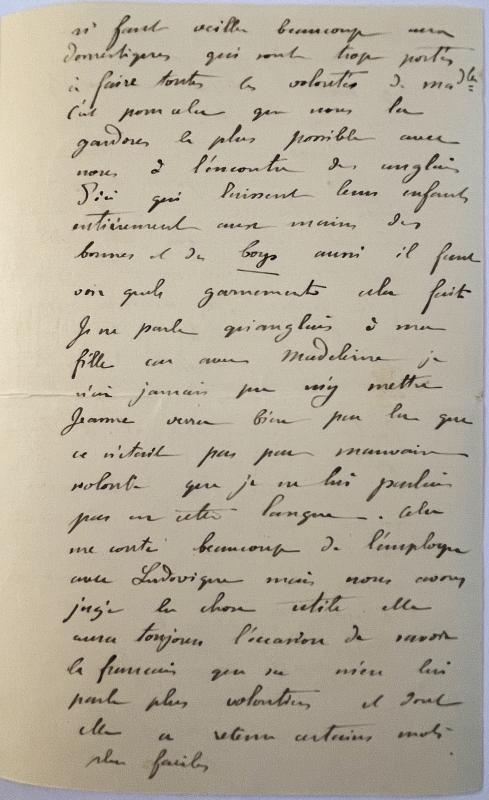 il faut veiller beaucoup aux
domestiques qui sont trop portés
à faire toutes les volontés de ma dlle
C'est pour cela que nous la
gardons le plus possible avec
nous à l'encontre des anglais
d'ici qui laissent leurs enfants
entièrement aux mains des
bonnes et des boys aussi il faut
voir quels garnements cela fait
Je ne parle qu'anglais à ma
fille car avec Madeleine je
n'ai jamais pu m'y mettre
Jeanne verra bien par là que
ce n'était pas par mauvaise
volonté que je ne lui parlais
pas en cette langue. Cela
me coûte beaucoup de l'employer
avec Ludovique mais nous avons
jugé la chose utile elle
aura toujours l'occasion de savoir
le français que sa lui
parle plus volontiers et dont
elle a retenu certains mots
plus faciles